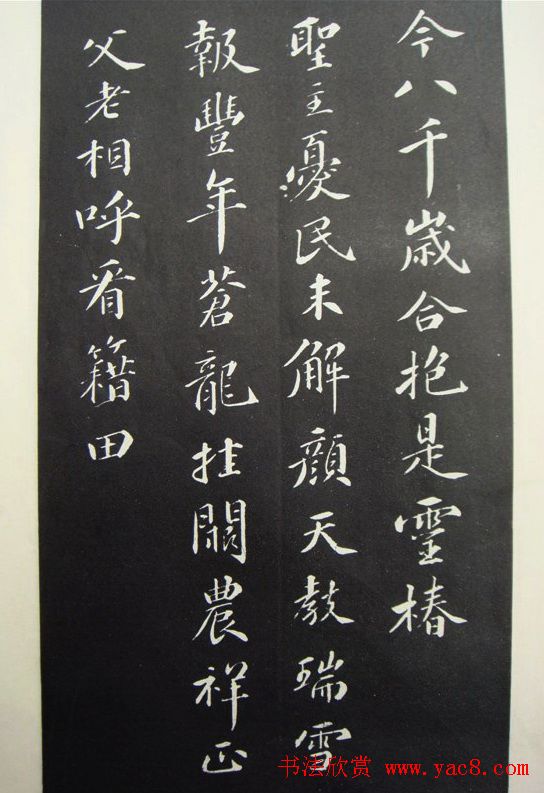 今八千歲合抱是靈椿
聖主憂民未解顏天教瑞雪
報豐年蒼龍挂闕農祥正
父老相呼看籍田
书法欣赏 www.yac8.com